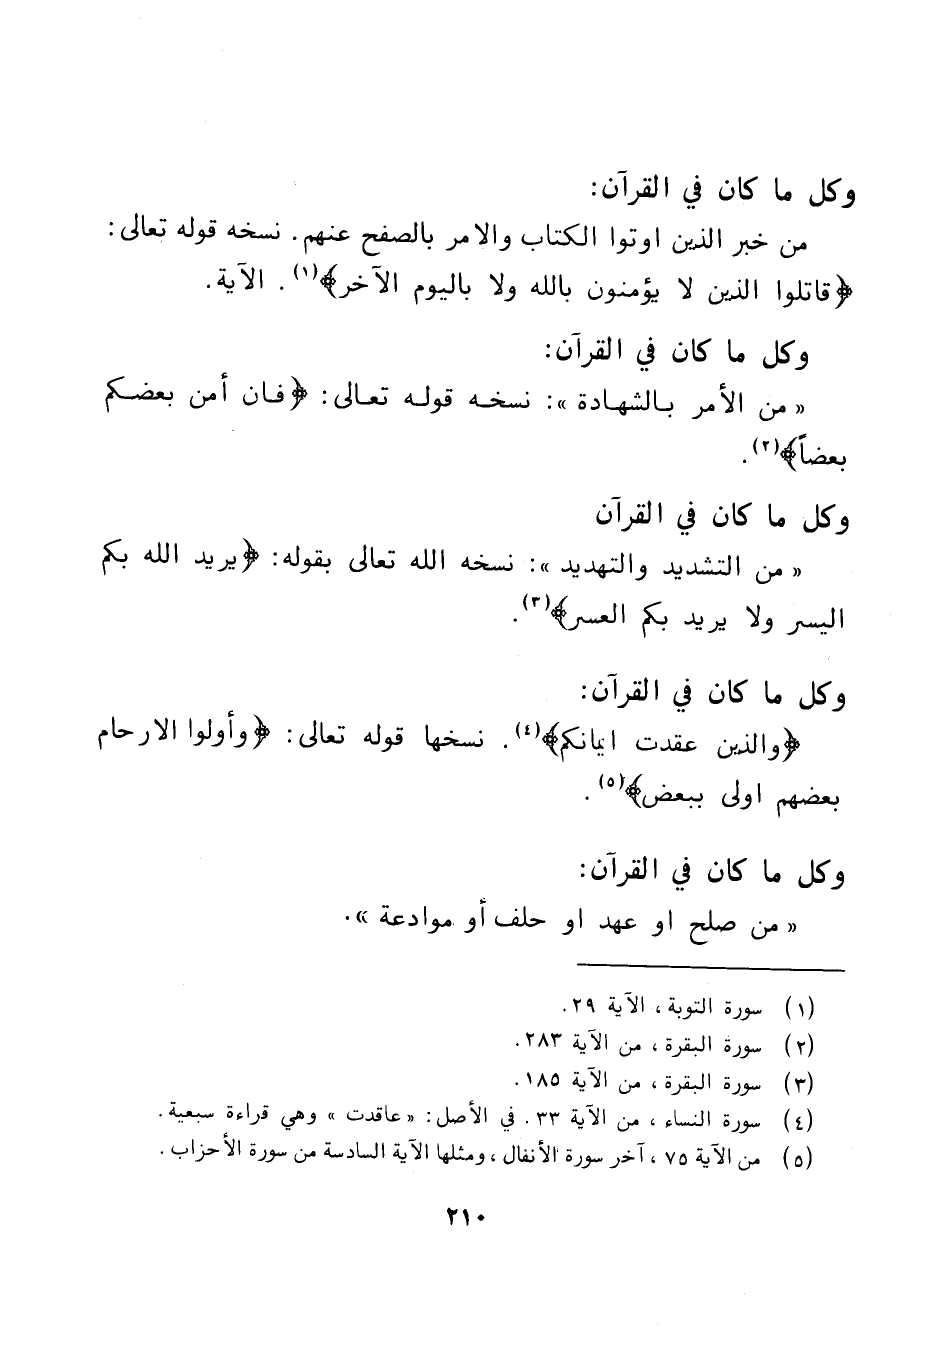 وكل ما كان في القرآن:
من خبر الذين اوتوا الكتاب والامر بالصفح عنهم. نسخه قوله تعالى:
﴿قاتلوا الذين لا يؤمنون بالله ولا باليوم الآخر﴾(١). الآية.
وكل ما كان في القرآن:
« من الأمر بالشهادة »: نسخه قوله تعالى: ﴿فان أمن بعضكم
بعضاً﴾(٢).
وكل ما كان في القرآن
« من التشديد والتهديد »: نسخه الله تعالى بقوله: ﴿يريد الله بكم
اليسر ولا يريد بكم العسر﴾(٣).
وكل ما كان في القرآن:
﴿والذين عقدت ايمانكم﴾(٤). نسخها قوله تعالى: ﴿وأولوا الارحام
بعضهم اولى ببعض﴾(٥).
وكل ما كان في القرآن:
« من صلح او عهد او حلف أو موادعة ».
(١) سورة التوبة، الآية ٢٩.
(٢) سورة البقرة، من الآية ٢٨٣.
(٣) سورة البقرة، من الآية ١٨٥.
(٤) سورة النساء، من الآية ٣٣. في الأصل: « عاقدت » وهي قراءة سبعية.
(٥) من الآية ٧٥، آخر سورة الأنفال، ومثلها الآية السادسة من سورة الأحزاب.
٢١٠